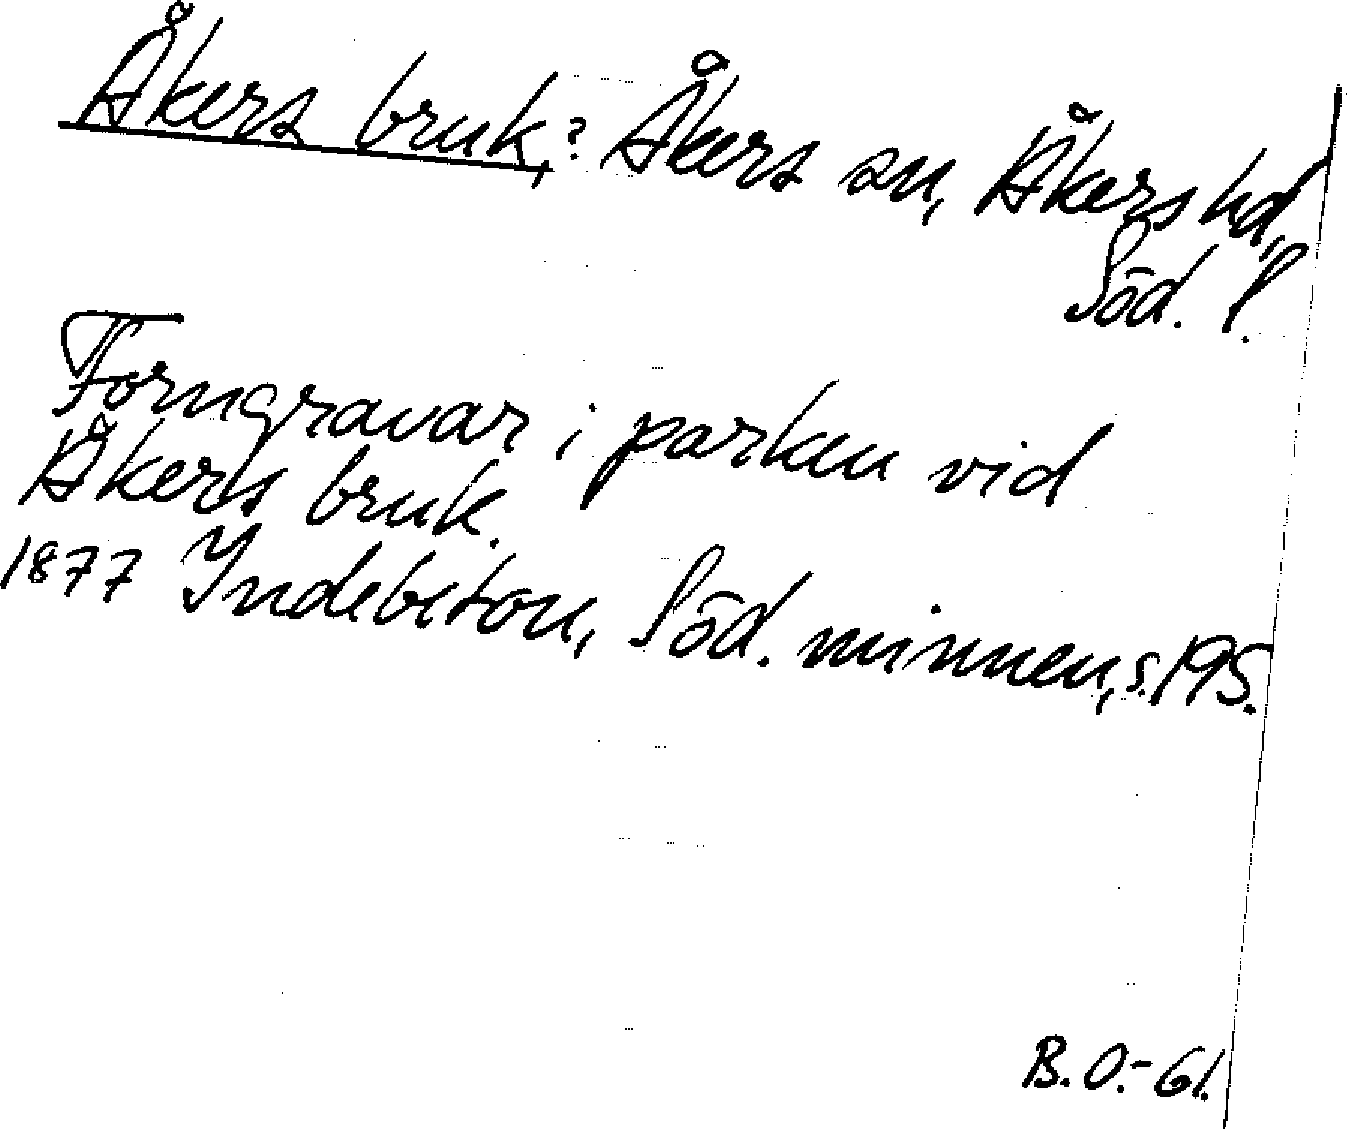 Åkers bruk,? Åkers sn, Åkers hd,
Söd. l.
Forngravar i parken vid
Åkers bruk.
1877 Indebetou, Söd. minnen, s. 195.
B. O. - 61.